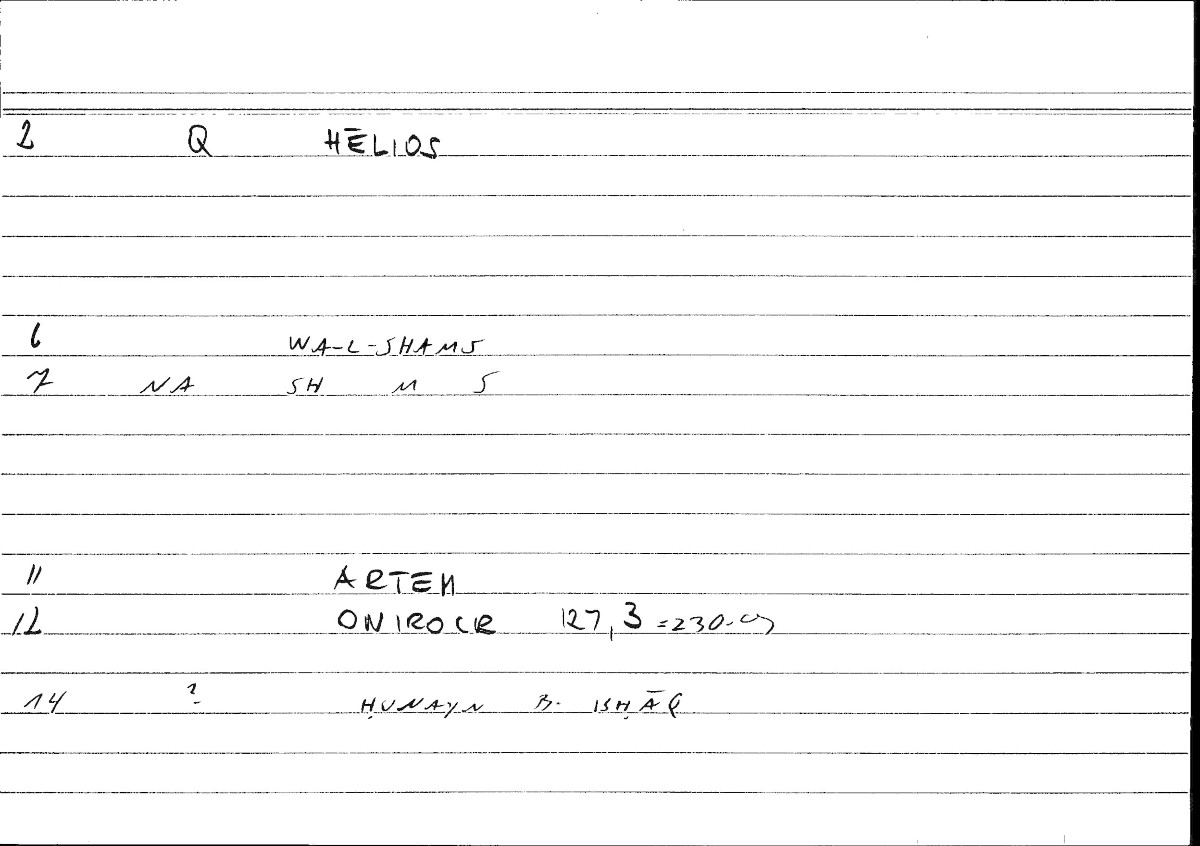 2 Q HĒLIOS
6 WA-L-SHAMS
7 NA SH M S
11 ARTEM
12 ONIROCR 127,3 =230.
14 ? ḤUNAYN B. ISḤĀQ